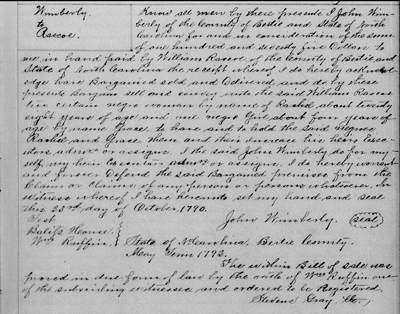 Wimberly. Know all men by these presents I John Wim-
to berly of the County of Bertie and State of North
Rascoe. Carolina for and in consideration of the sum
of one hundred and seventy five Dollars to
me in hand paid by William Rascoe of the County of Bertie and
State of North Carolina the receipt whereof I do hereby acknowl-
edge have Bargained sold and Delivered and do by these
presents Bargain sell and convey unto the said William Rascoe
certain negro woman by name of Rachel about twenty
eight years of age and one negro Girl about four years of
age by name Grace, to have and to hold the said negroes
Rachel and Grace them and their increase his heirs Exec-
utors, admrs or assigns. I the said John Wimberly do for my-
self my heirs Executors admrs or assigns. do hereby warrant
and forever Defend the said Bargained premises from the
Claim or claims of any person or persons whatsoever. In
witness whereof I have hereunto set my hand and seal
this 23rd day of October. 1790.
Test. John Wimberly. (seal)
House.
Wm Ruffin. State of No Carolina. Bertie County.
May Term 1792.
The within Bill of sale was
proved in due form of law by the oath of Wm Ruffin one
of the subscribing witnesses and ordered to be Registered.
Stevens Gray, Clk.